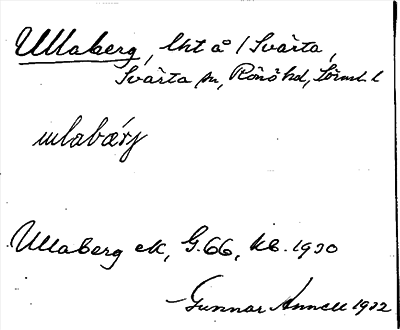 Ullaberg, lht å / Svärta,
Svärta sn, Rönö hd, Sörml. l
ullabærj
Ullaberg ek, G.66, kb. 1930
Gunnar Annell 1932